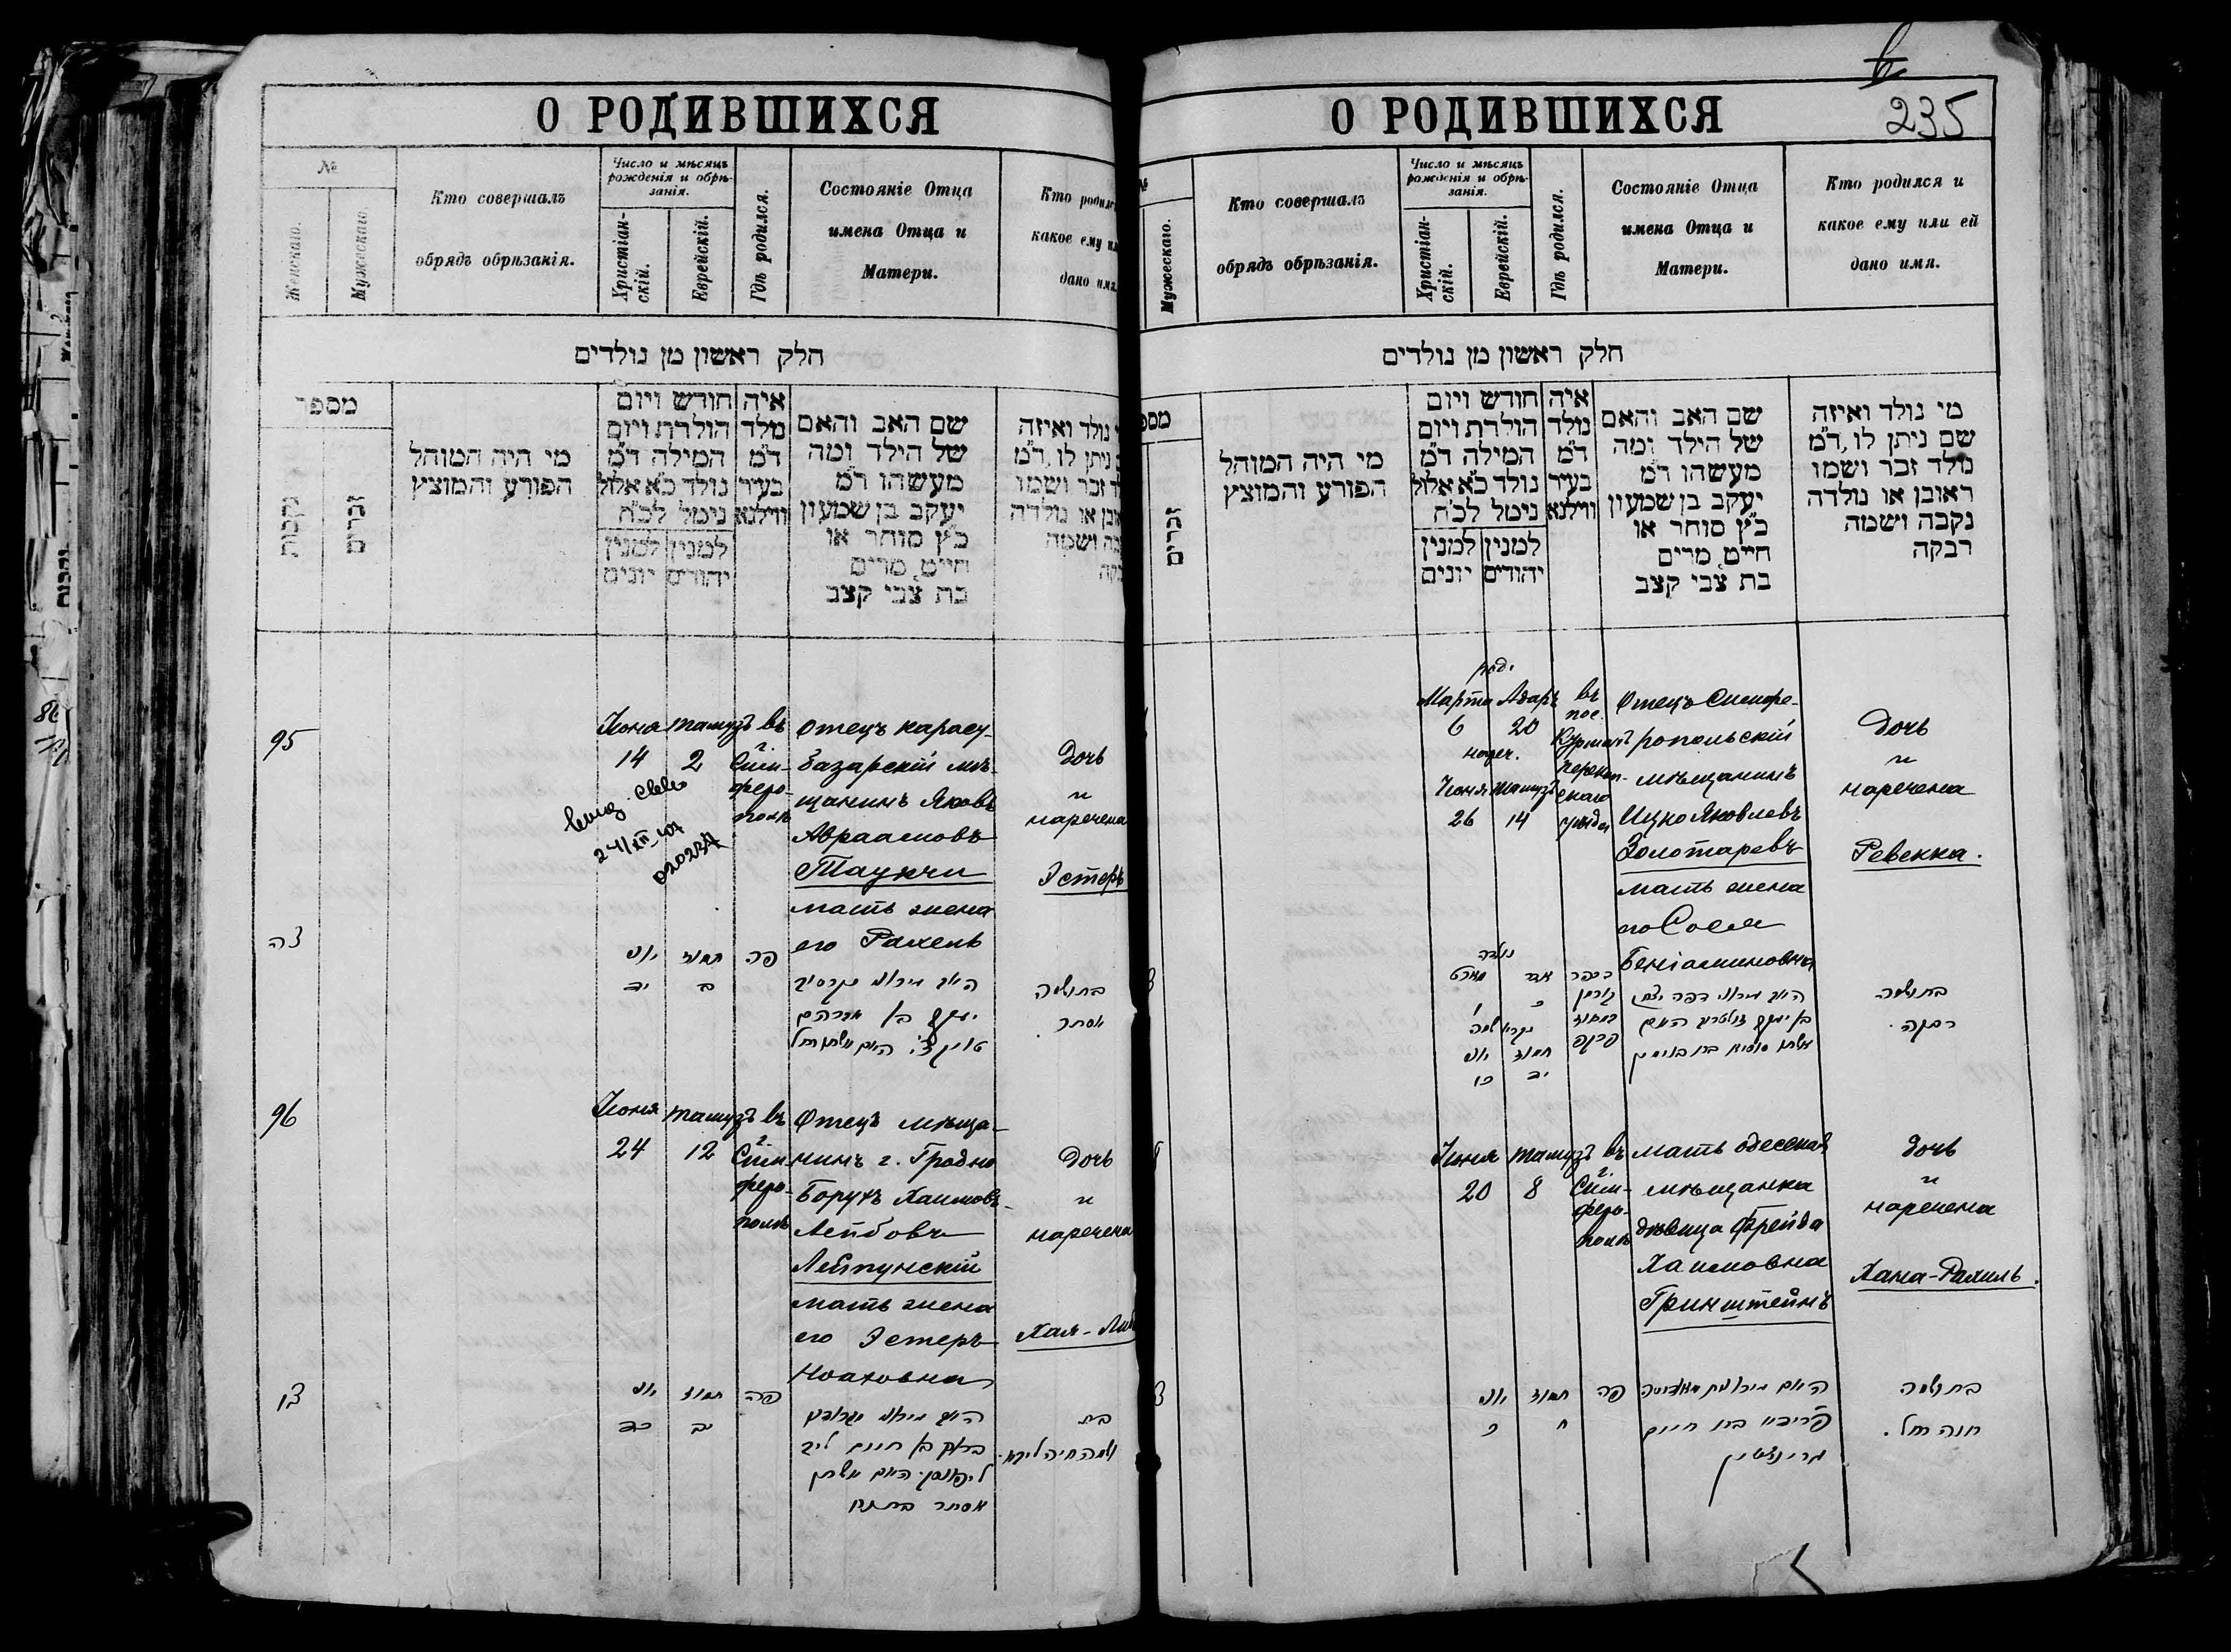 О РОДИВШИХСЯ
№
Женскаго.
Мужескаго.
Кто совершалъ
обрядъ обрѣзанія.
Число и мѣсяцъ
рожденія и обрѣ-
занія.
Христіан-
скій.
Еврейскій.
Гдѣ родился.
Состояніе Отца
имена Отца и
Матери.
Кто
какое ему
дано имя.
חלק ראשון מן נולדים
מספר
נקבות
זכרים
מי היה המוהל
הפורע והמוצץ
חודש ויום
הולדת ויום
המילה ד"מ
נולד כ"א אלול
נימל לכ"ח
למנין למנין
יהודים יונים
איה
נולד
ד"מ
בעיר
ווילנא
שם האב והאם
של הילד ומה
מעשהו ד"מ
יעקב בן שמעון
כ"ץ סוחר או
חייט מרים
בת צבי קצב
נולד ואיזה
ניתן לו ד"מ
זכר ושמו
או נולדה
ושמה
95
Іюня
14
Тамузъ
2
въ
г.
Сим-
феро-
полѣ
Отецъ карасу-
базарскій мѣ-
щанинъ Яковъ
Авраамовъ
Таукчи
мать жена
его Рахель
Дочь
и
наречена
Эстеръ
צה
יוני
יד
תמוז
ב
פה
יעקב בן אברהם
בת ושמה
אסתר
96
Іюня
24
Тамузъ
12
въ
г.
Сим-
феро-
полѣ
Отецъ мѣща-
нинъ г. Гродно
Борухъ Хаимовъ-
Лейбовъ
Лейпунскій
мать жена
его Эстеръ
Ноаховна
Дочь
и
наречена
Хая-
צו
יוני
כד
תמוז
יב
פה
בת
О РОДИВШИХСЯ
235
Мужескаго.
Кто совершалъ
обрядъ обрѣзанія.
Число и мѣсяцъ
рожденія и обрѣ-
занія.
Христіан-
скій.
Еврейскій.
Гдѣ родился.
Состояніе Отца
имена Отца и
Матери.
Кто родился и
какое ему или ей
дано имя.
חלק ראשון מן נולדים
זכרים
מי היה המוהל
הפורע והמוצץ
חודש ויום
הולדת ויום
המילה ד"מ
נולד כ"א אלול
נימל לכ"ח
למנין למנין
יהודים יונים
איה
נולד
ד"מ
בעיר
ווילנא
שם האב והאם
של הילד ומה
מעשהו ד"מ
יעקב בן שמעון
כ"ץ סוחר או
חייט מרים
בת צבי קצב
מי נולד ואיזה
שם ניתן לו ד"מ
נולד זכר ושמו
ראובן או נולדה
נקבה ושמה
רבקה
род.
Марта
6
Адаръ
20
нареч.
Іюня
26
Тамузъ
14
въ
пос.
Курманъ
Перекоп-
скаго
уѣзда
Отецъ Симфе-
ропольскій
мѣщанинъ
Ицко Яковлевъ
Золотаревъ
мать жена
его Соса
Беніаминовна
Дочь
и
наречена
Ревекка.
נולדה
אדר
תמוז
יד
בת ושמה
רבקה.
Іюня
20
Тамузъ
8
въ
г.
Сим-
феро-
полѣ
Мать одесская
мѣщанка
дѣвица Фрейда
Хаимовна
Гринштейнъ
Дочь
и
наречена
Хана-Рахиль.
יוני
כ
תמוז
ח
פה
בת חיים
גרינשטיין
בת ושמה
חנה רחל.